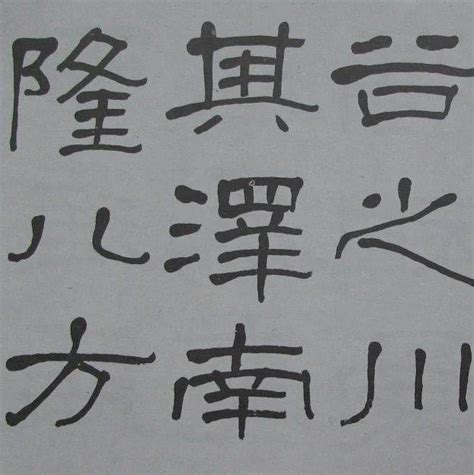 谷之川
其澤南
隆八方